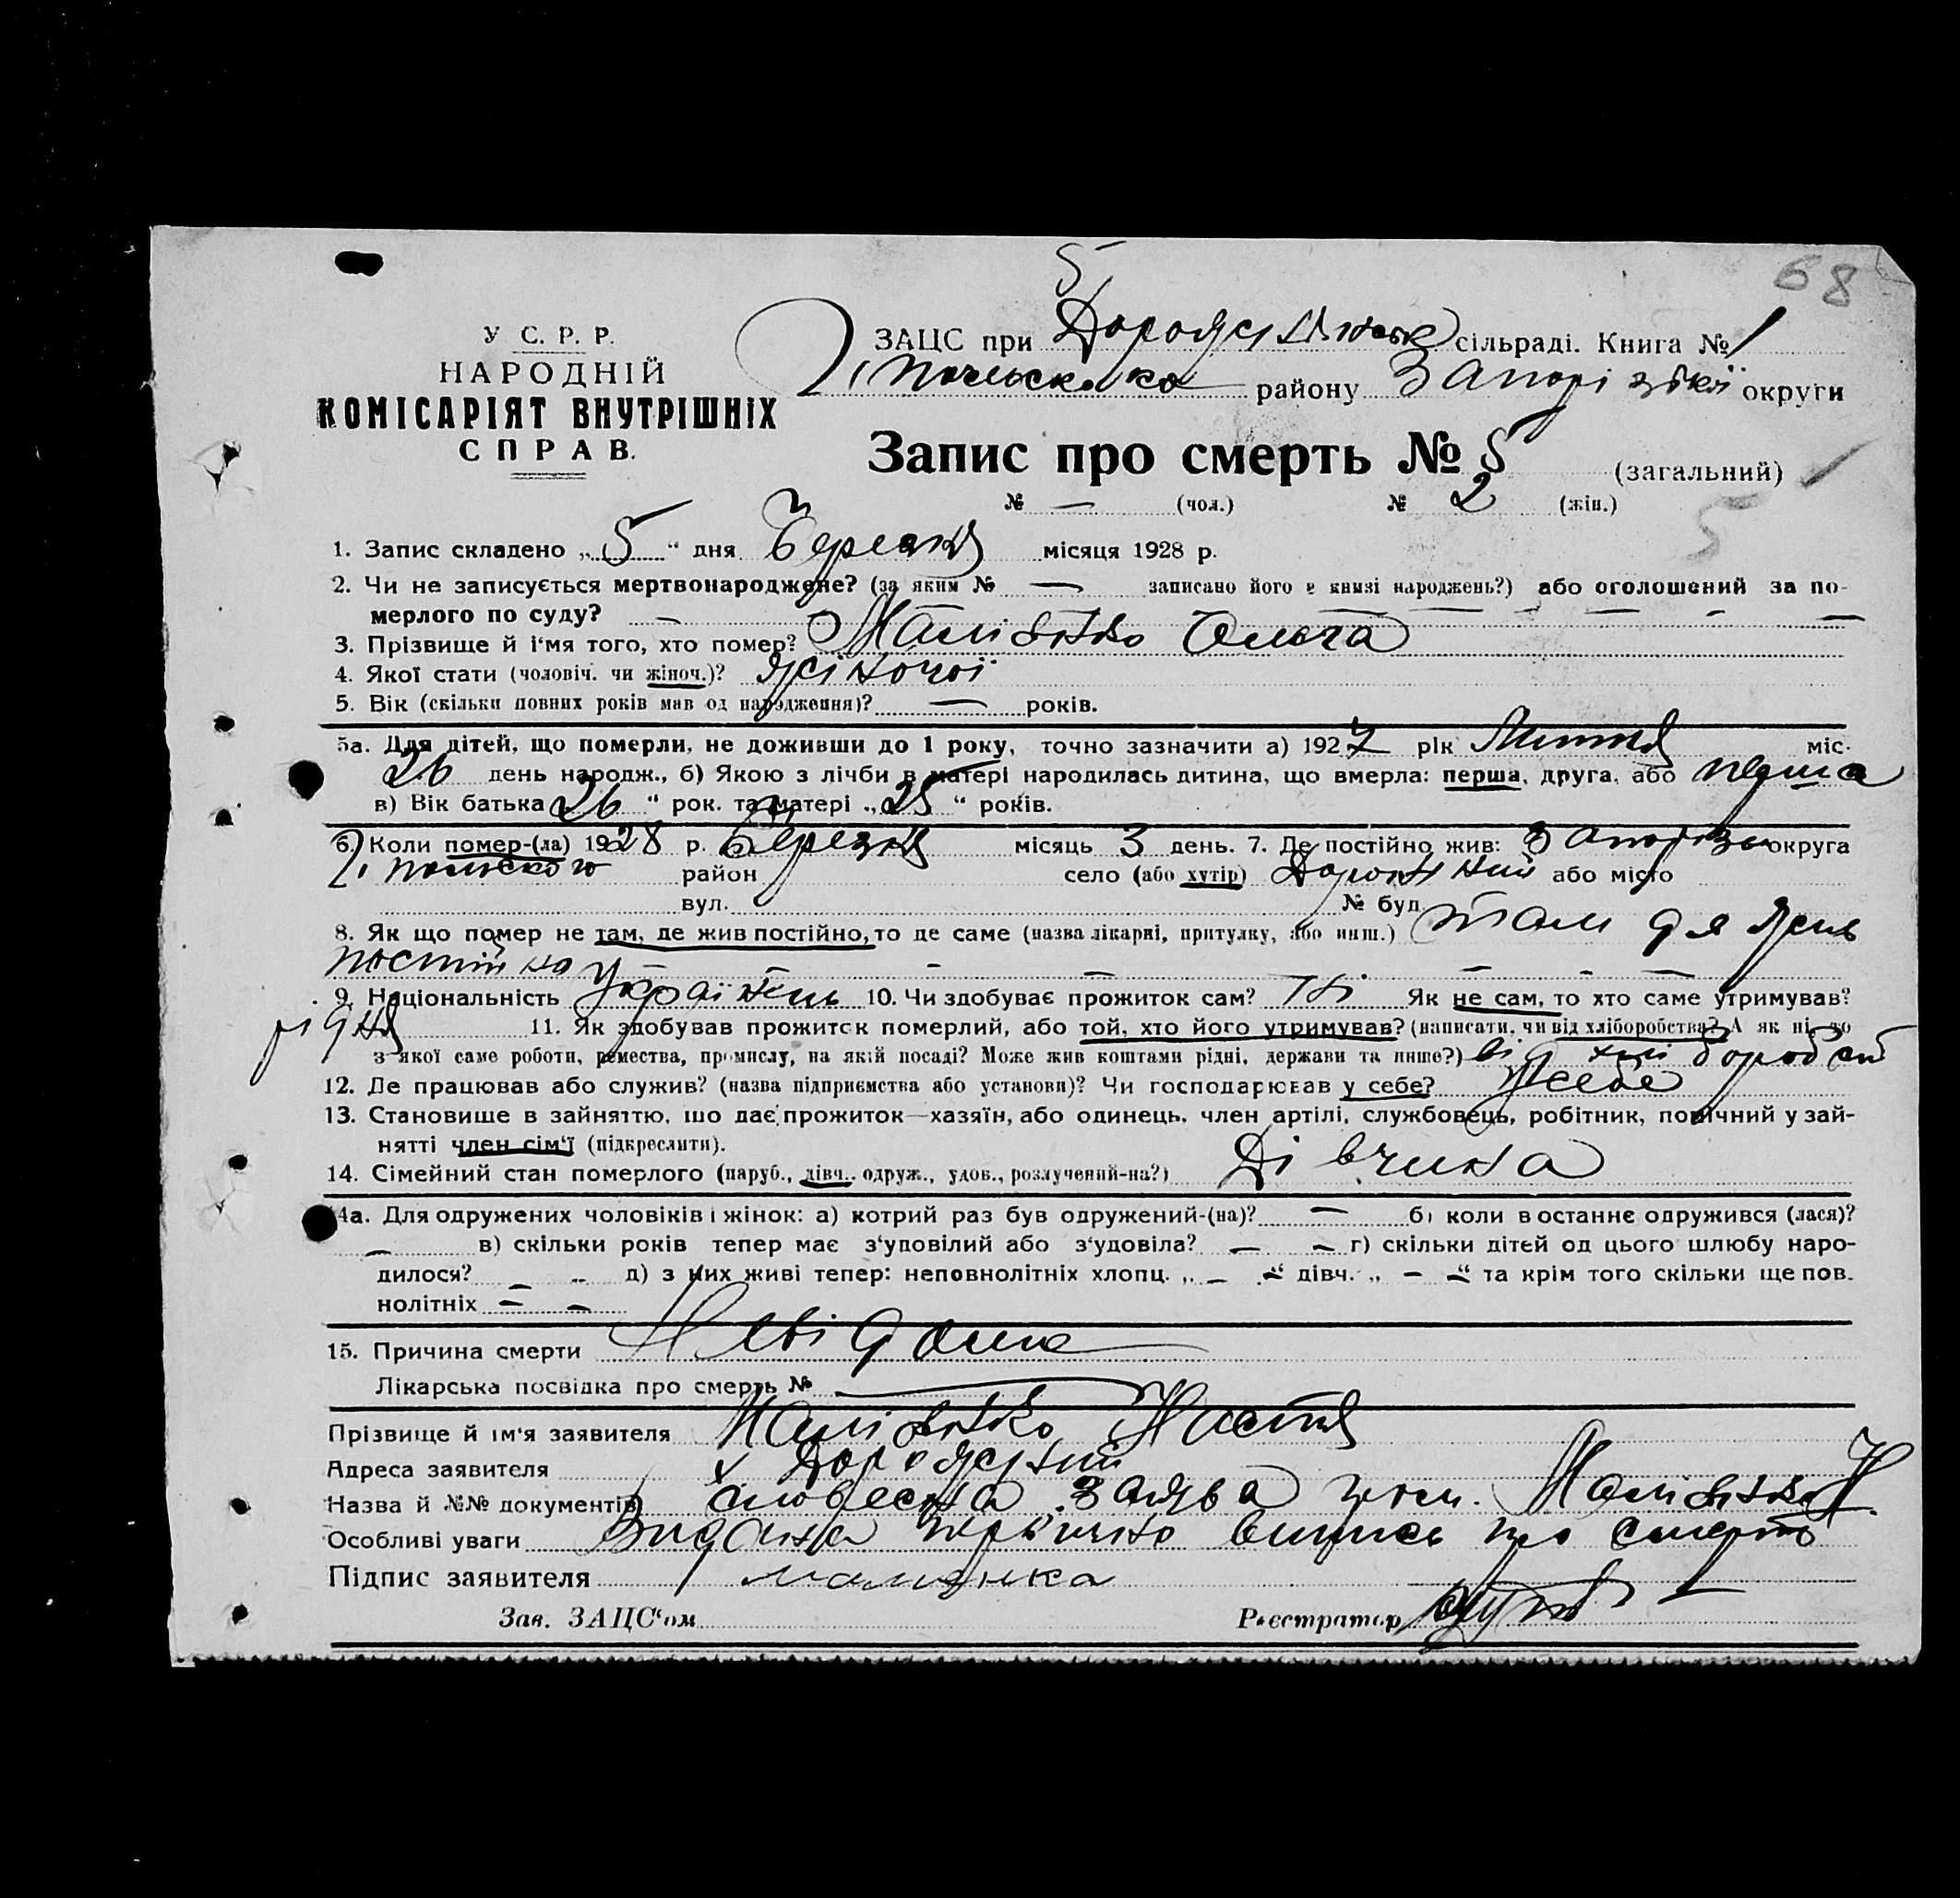 5
68
У С. Р. Р.
НАРОДНІЙ
КОМІСАРІЯТ ВНУТРІШНІХ
СПРАВ.
ЗАЦС при сільраді. Книга № 1
району Запорізької округи
Запис про смерть № 5 (загальний)
№ — (чол.) № 2 (жін.)
5
1. Запис складено „ 5 “ дня Березня місяця 1928 р.
2. Чи не записується мертвонароджене? (за яким № — записано його в книзі народжень?) або оголошений за по-
мерлого по суду? —
3. Прізвище й і‘мя того, хто помер? Ольга
4. Якої стати (чоловіч. чи жіноч.)? жіночої
5. Вік (скільки повних років мав од народження)? — років.
5а. Для дітей, що померли, не доживши до 1 року, точно зазначити а) 1927 рік Липня міс.
26 день народж., б) Якою з лічби в матері народилась дитина, що вмерла: перша, друга, або перша
в) Вік батька 26 “ рок. та матері „ 25 “ років.
6. Коли помер-(ла) 1928 р. Березня місяць 3 день. 7. Де постійно жив: округа
район село (або хутір) або місто
вул. № буд.
8. Як що помер не там, де жив постійно, то де саме (назва лікарні, притулку, або инш.) там де
постійно
9. Національність Українець 10. Чи здобуває прожиток сам? Ні Як не сам, то хто саме утримував?
рідня 11. Як здобував прожиток померлий, або той, хто його утримував? (написати, чи від хліборобства? А як ні, то
з якої саме роботи, ремества, промислу, на якій посаді? Може жив коштами рідні, держави та инше?) від
12. Де працював або служив? (назва підприємства або установи)? Чи господарював у себе? У себе
13. Становище в зайняттю, що дає прожиток—хазяїн, або одинець, член артілі, службовець, робітник, помічний у зай-
нятті член сім‘ї (підкреслити).
14. Сімейний стан померлого (паруб., дівч., одруж., удов., розлучений-на?) Дівчина
14а. Для одружених чоловіків і жінок: а) котрий раз був одружений-(на)? — б) коли востаннє одружився (лася)?
— в) скільки років тепер має з‘удовілий або з‘удовіла? — — г) скільки дітей од цього шлюбу наро-
дилося? — — д) з них живі тепер: неповнолітніх хлопц. „ — “ дівч. „ — “ та крім того скільки ще пов.
нолітніх — —
15. Причина смерти Невідома
Лікарська посвідка про смерть № —
Прізвище й ім‘я заявителя Настя
Адреса заявителя х
Назва й №№ документів Словесна заява гром.
Особливі уваги Видана первично випись про смерть
Підпис заявителя
Зав. ЗАЦС‘ом Реєстратор